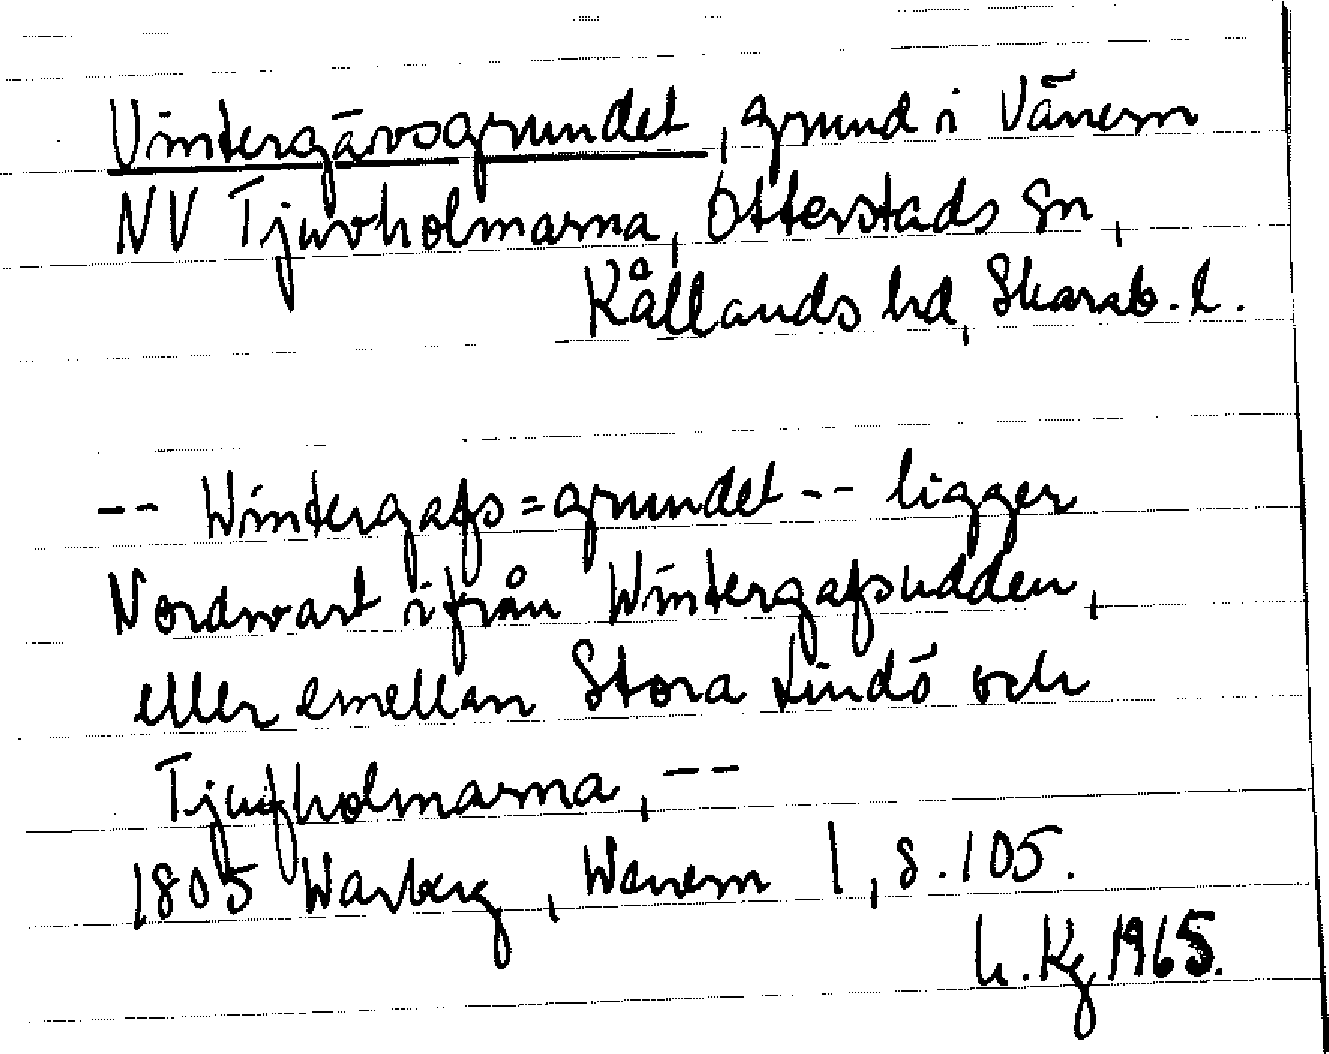 Vintergävsgrundet, grund i Vänern
NV Tjuvholmarna, Otterstads sn,
Kållands hd, Skarab. l.
-- Wintergafs=grundet -- ligger
Nordwart ifrån Wintergafsudden,
eller emellan Stora Lindö och
Tjufholmarna, --
1805 Warberg, Wenern 1, s. 105.
L. Kg 1965.